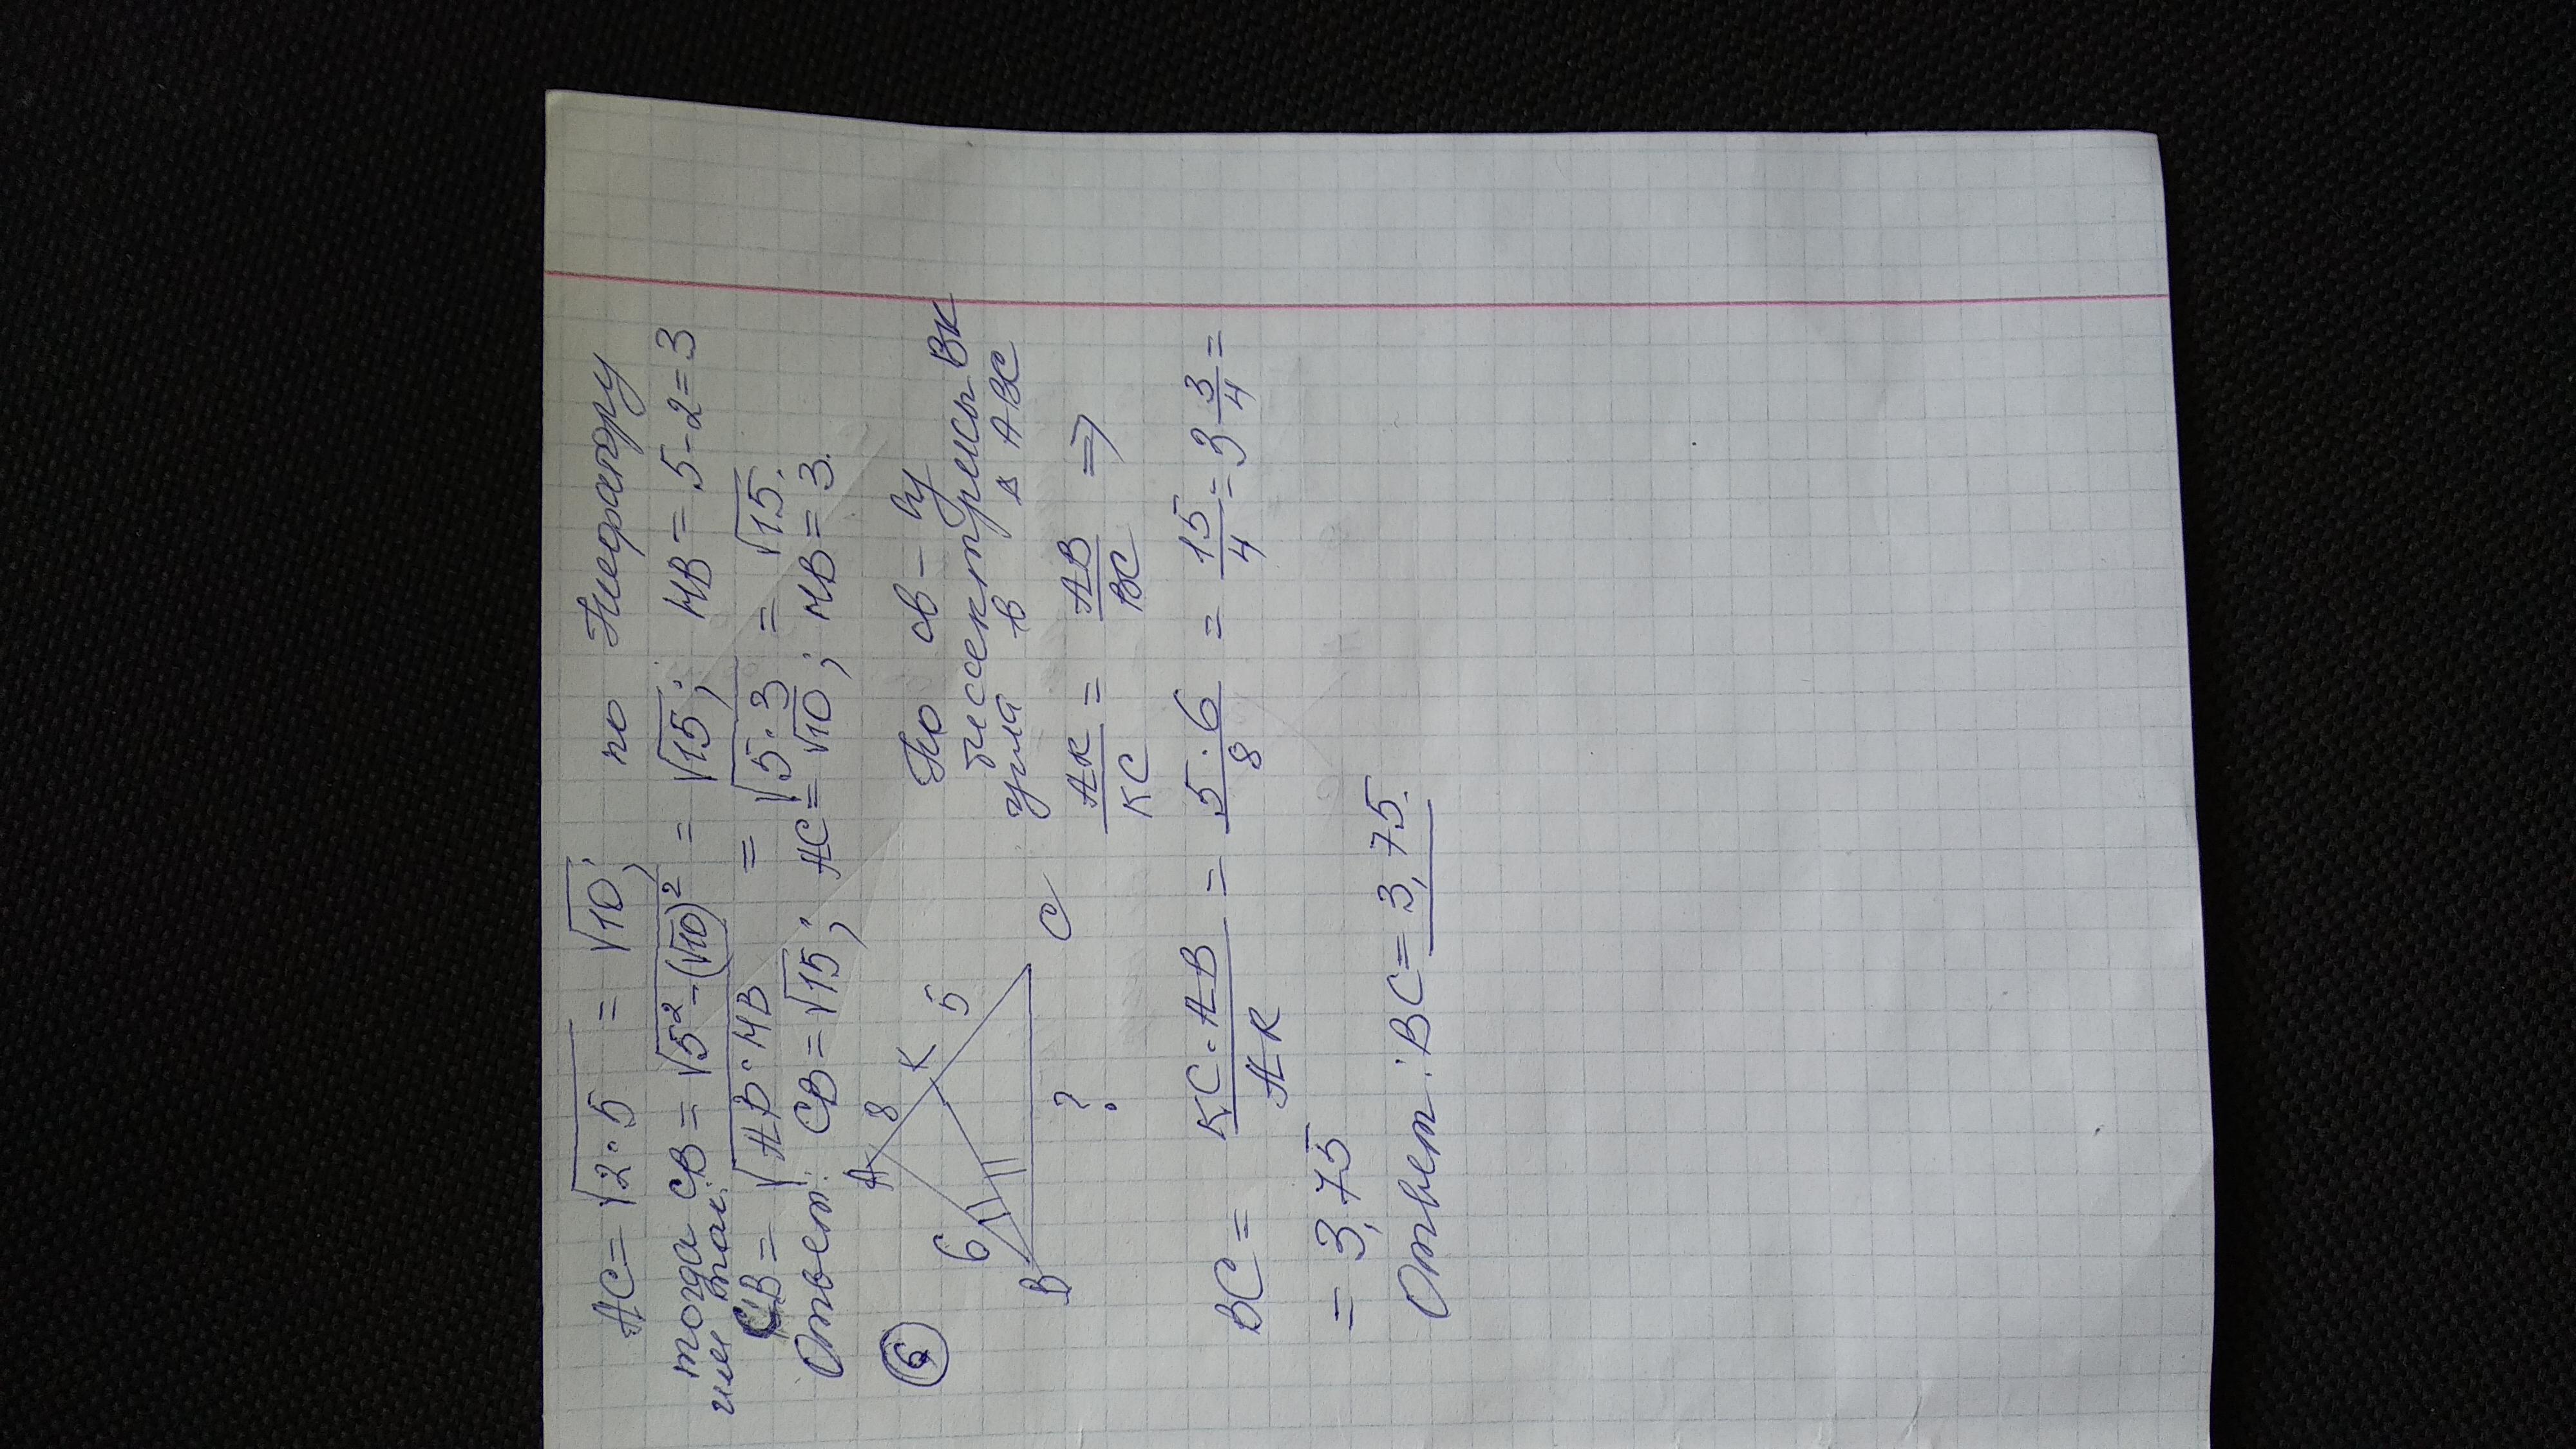 AC = √2·5 = √10; по Пифагору
тогда CB = √5²-(√10)² = √15; MB = 5-2=3
или так:
CB = √AB·MB = √5·3 = √15.
Ответ: CB = √15; AC = √10; MB = 3.
6
A 8 K 5 C
6 B ?
По св-ву
биссектрисы BK
угла B в △ ABC
AK/KC = AB/BC ⇒
BC = KC·AB/AK = 5·6/8 = 15/4 = 3 3/4 =
= 3,75
Ответ: BC = 3,75.